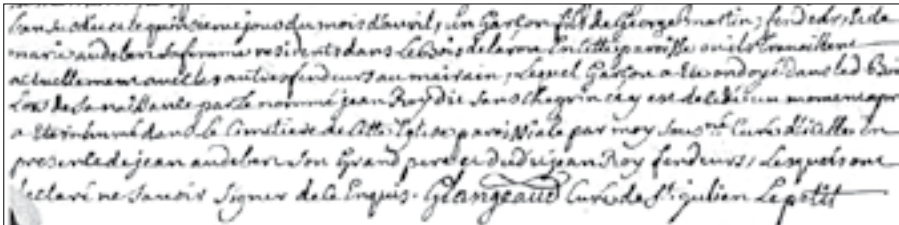 le quinsieme jour du mois d'avril, un Garçon fils de George martin, fendeur, et de
marie audebert sa femme residents dans Le Bois de la en cette paroisse ou ils travaillent
actuellement avec les autres fendeurs au mairain, Lequel Garçon a ete ondoyé dans led Bois
Lors de sa naissance par le nommé jean Roy dit sans chagrin et y est decedé un moment apr
a ete inhumé dans le Cimetiere de Cette Eglise paroissiale par moy sous.né Curé d'icelle En
presence de jean audebert son Grand pere et dudit jean Roy fendeurs, Lesquels ont
declaré ne savoir signer de ce Enquis. Glangeaud Curé de St. julien Le petit